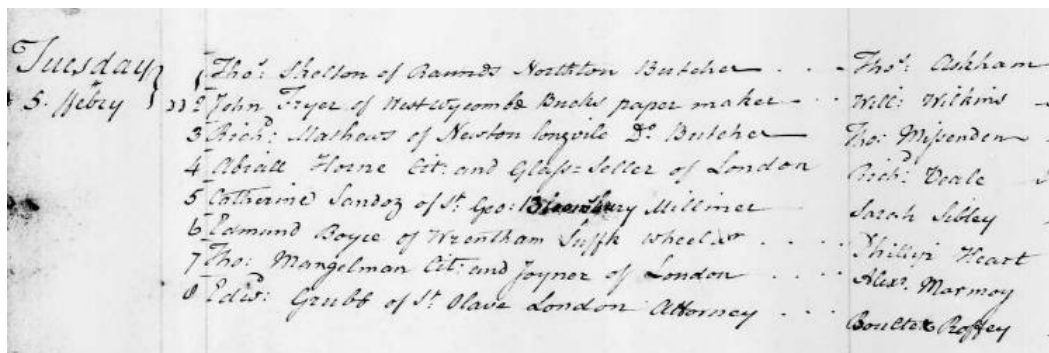 Tuesday 1 Tho.s Shelton of Raunds Northton Butcher - - - Tho.s Askham
5. ffebry 2 John Fryer of West Wycombe Bucks paper maker - - - Will: Wilkins
3 Rich.d: Mathews of Newton longvile D.o Butcher Tho: Missenden
4 Abrall Horne Cit: and Glass=Seller of London Rich.d Deale
5 Catherine Sandoz of S.t Geo: Bloomsbury Milliner Sarah Sibley
6 Edmund Boyce of Wrentham Suffk wheeler - - - - Phillip Heart
7 Tho: Mangelman Cit: and Joyner of London - - - - Alex.r Marmoy
8 Edw.d: Grubb of S.t Olave London Attorney - - - Boulter Roffey